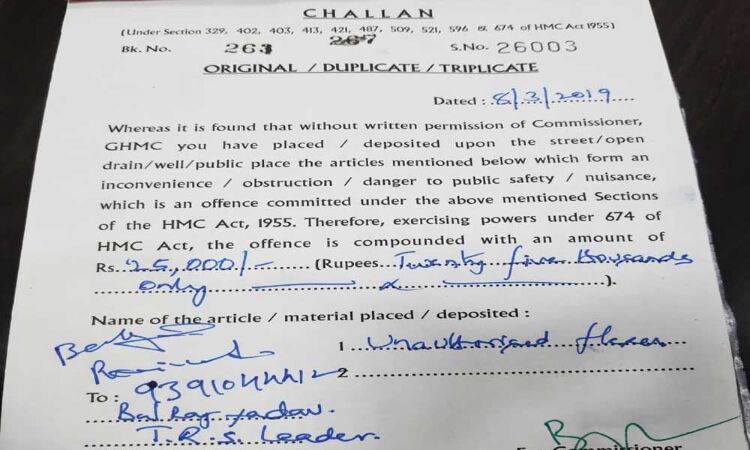 CHALLAN
(Under Section 329, 402, 403, 413, 421, 487, 509, 521, 596 & 674 of HMC Act 1955)
Bk. No. 263 267 S.No. 26003
ORIGINAL / DUPLICATE / TRIPLICATE
Dated : 8/3/2019
Whereas it is found that without written permission of Commissioner,
GHMC you have placed / deposited upon the street/open
drain/well/public place the articles mentioned below which form an
inconvenience / obstruction / danger to public safety / nuisance,
which is an offence committed under the above mentioned Sections
of the HMC Act, 1955. Therefore, exercising powers under 674 of
HMC Act, the offence is compounded with an amount of
Rs. 25,000/- (Rupees Twenty five thousands
only ).
Name of the article / material placed / deposited :
1 Unauthorised flexes
2
To :
Bal Raj Yadav.
T.R.S Leader.